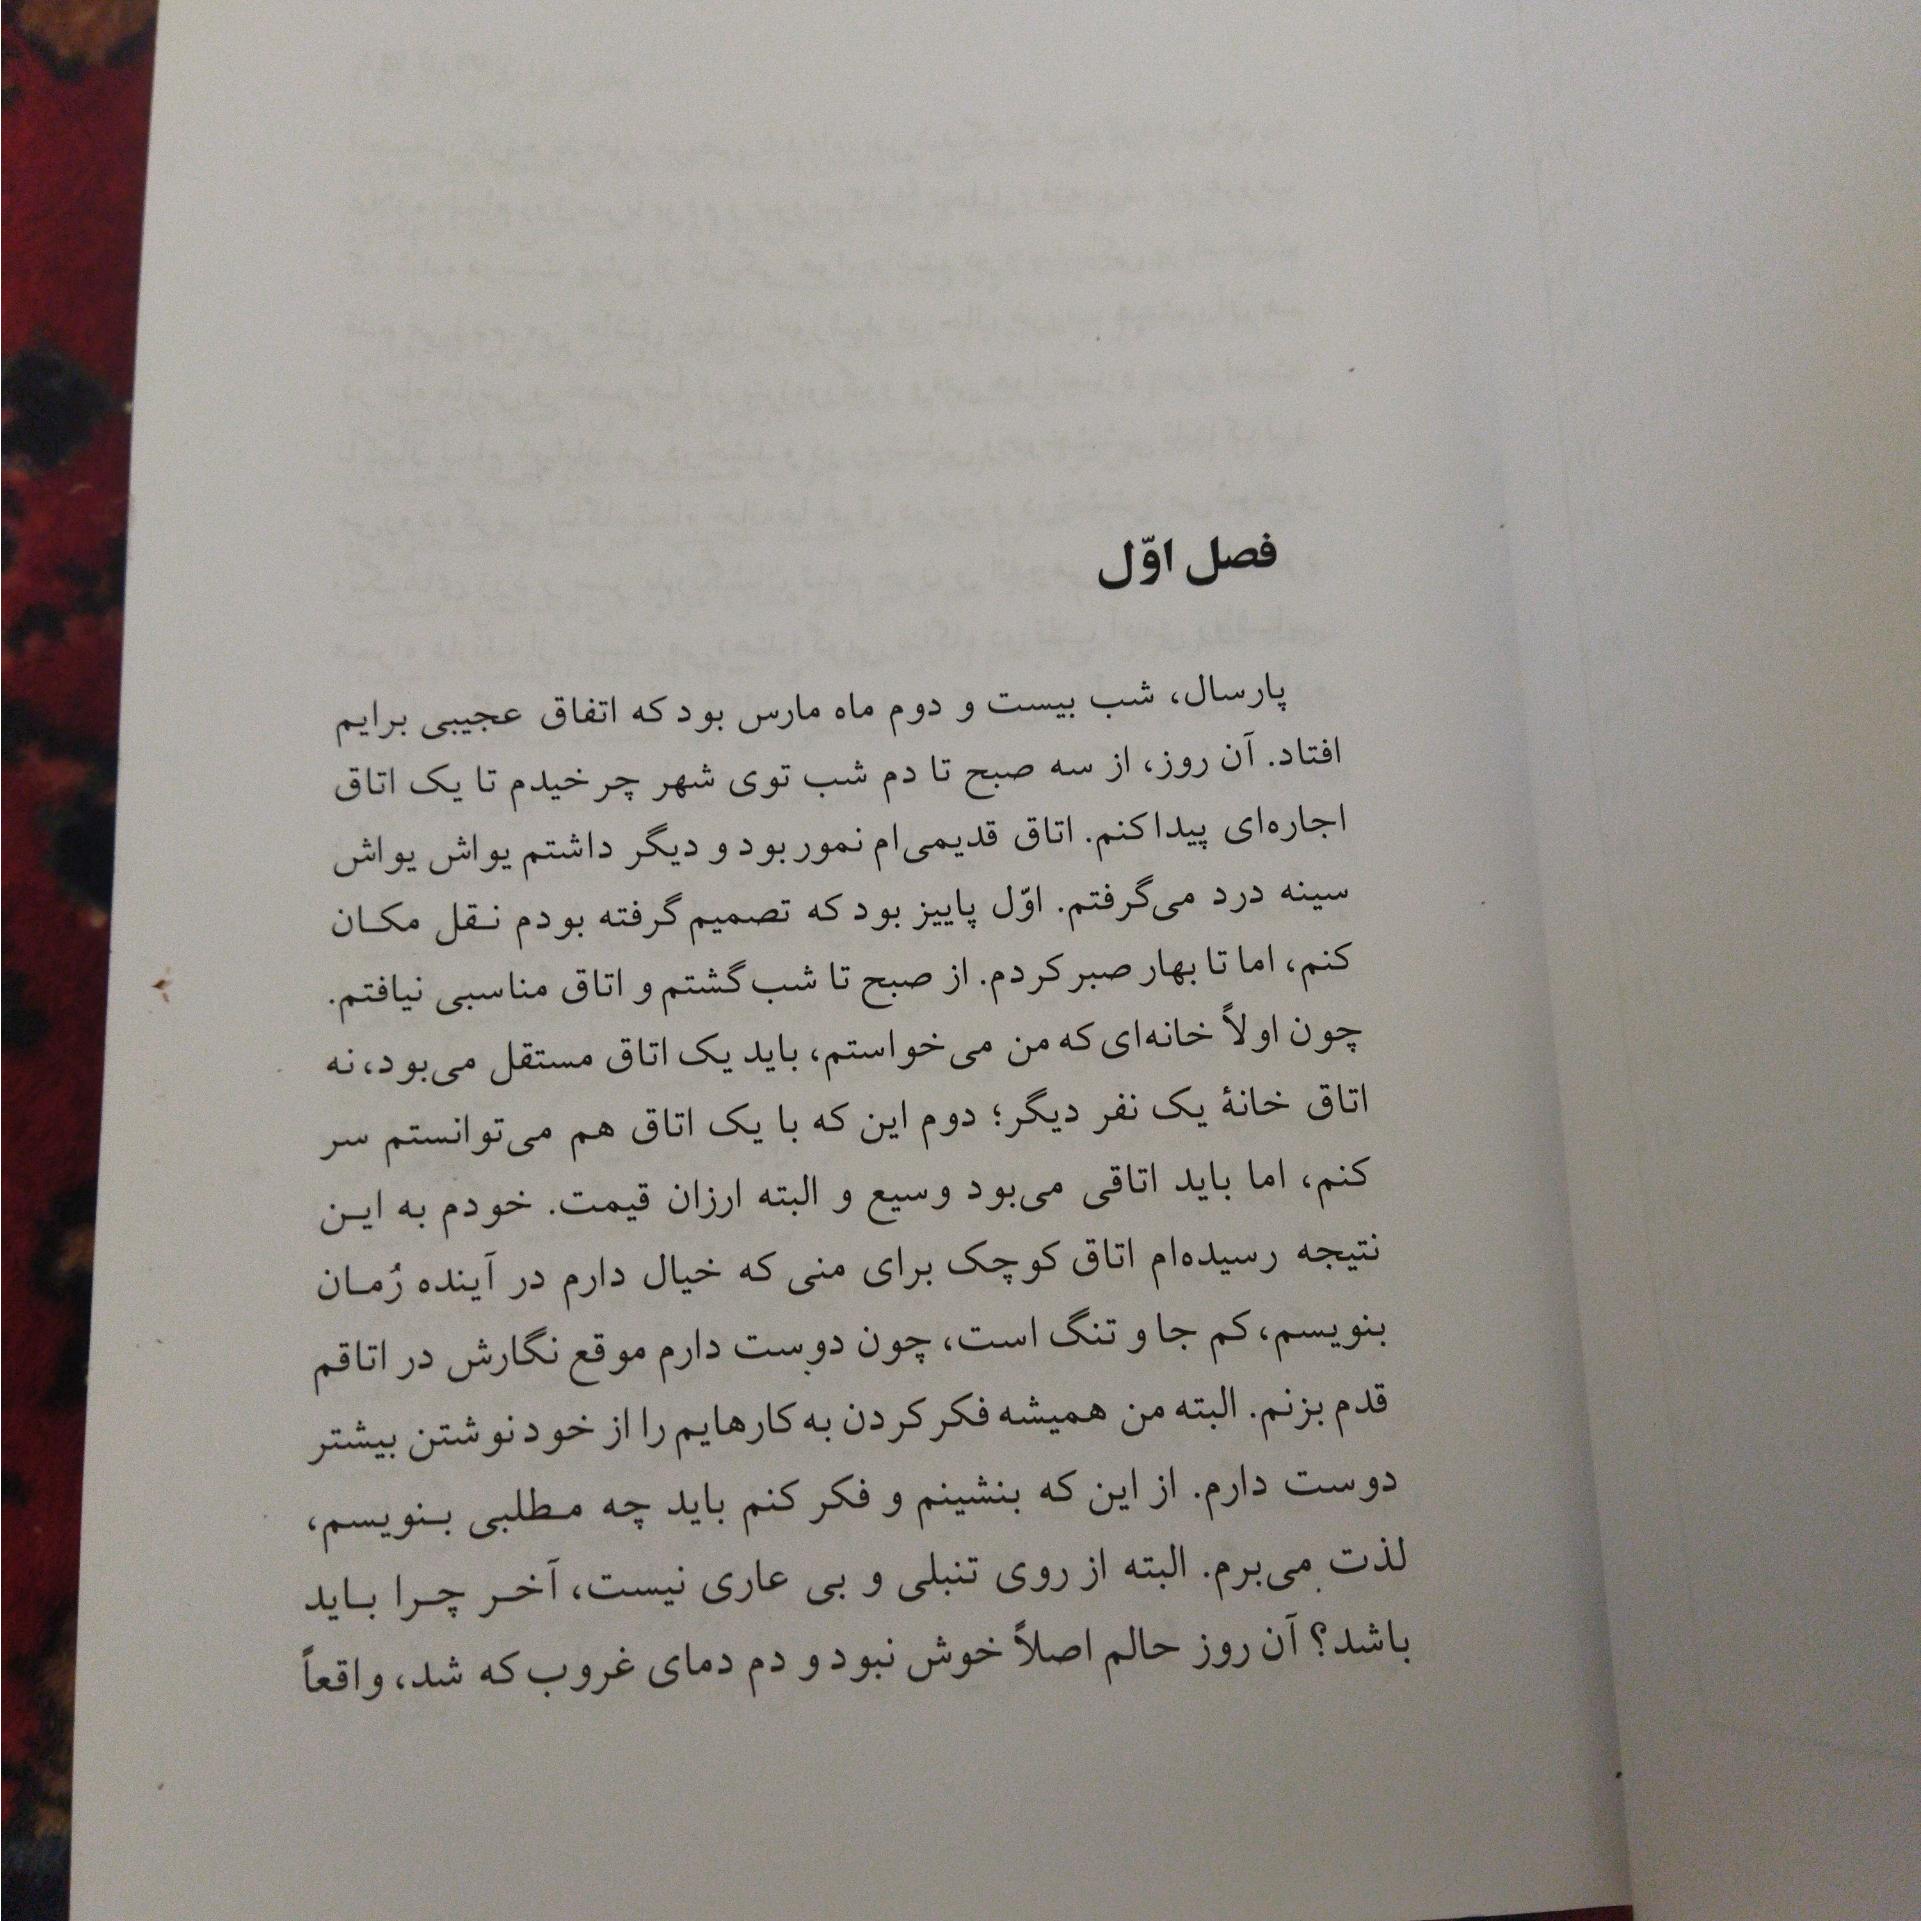 فصل اوّل
پارسال، شب بیست و دوم ماه مارس بود که اتفاق عجیبی برایم
افتاد. آن روز، از سه صبح تا دم شب توی شهر چرخیدم تا یک اتاق
اجاره‌ای پیدا کنم. اتاق قدیمی‌ام نمور بود و دیگر داشتم یواش یواش
سینه درد می‌گرفتم. اوّل پاییز بود که تصمیم گرفته بودم نقل مکان
کنم، اما تا بهار صبر کردم. از صبح تا شب گشتم و اتاق مناسبی نیافتم.
چون اولاً خانه‌ای که من می‌خواستم، باید یک اتاق مستقل می‌بود، نه
اتاق خانهٔ یک نفر دیگر؛ دوم این که با یک اتاق هم می‌توانستم سر
کنم، اما باید اتاقی می‌بود وسیع و البته ارزان قیمت. خودم به این
نتیجه رسیده‌ام اتاق کوچک برای منی که خیال دارم در آینده رُمان
بنویسم، کم جا و تنگ است، چون دوست دارم موقع نگارش در اتاقم
قدم بزنم. البته من همیشه فکر کردن به کارهایم را از خود نوشتن بیشتر
دوست دارم. از این که بنشینم و فکر کنم باید چه مطلبی بنویسم،
لذت می‌برم. البته از روی تنبلی و بی عاری نیست، آخر چرا باید
باشد؟ آن روز حالم اصلاً خوش نبود و دم دمای غروب که شد، واقعاً